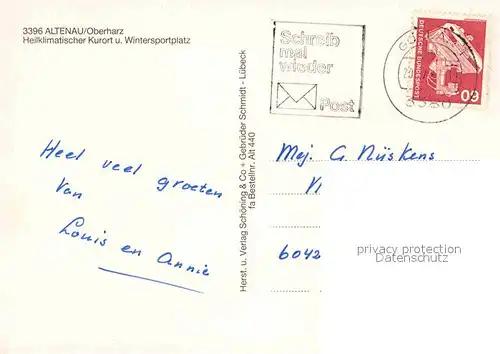 3396 ALTENAU/Oberharz
Heilklimatischer Kurort u. Wintersportplatz
Schreib
mal
wieder
Post
DEUTSCHE BUNDESPOST
60
Heel veel groeten
van
Louis en Annie
Herst. u. Verlag Schöning & Co + Gebrüder Schmidt - Lübeck
fa Bestellnr. Alt 440
Mej. G. Nüskens
6042
privacy protection
Datenschutz